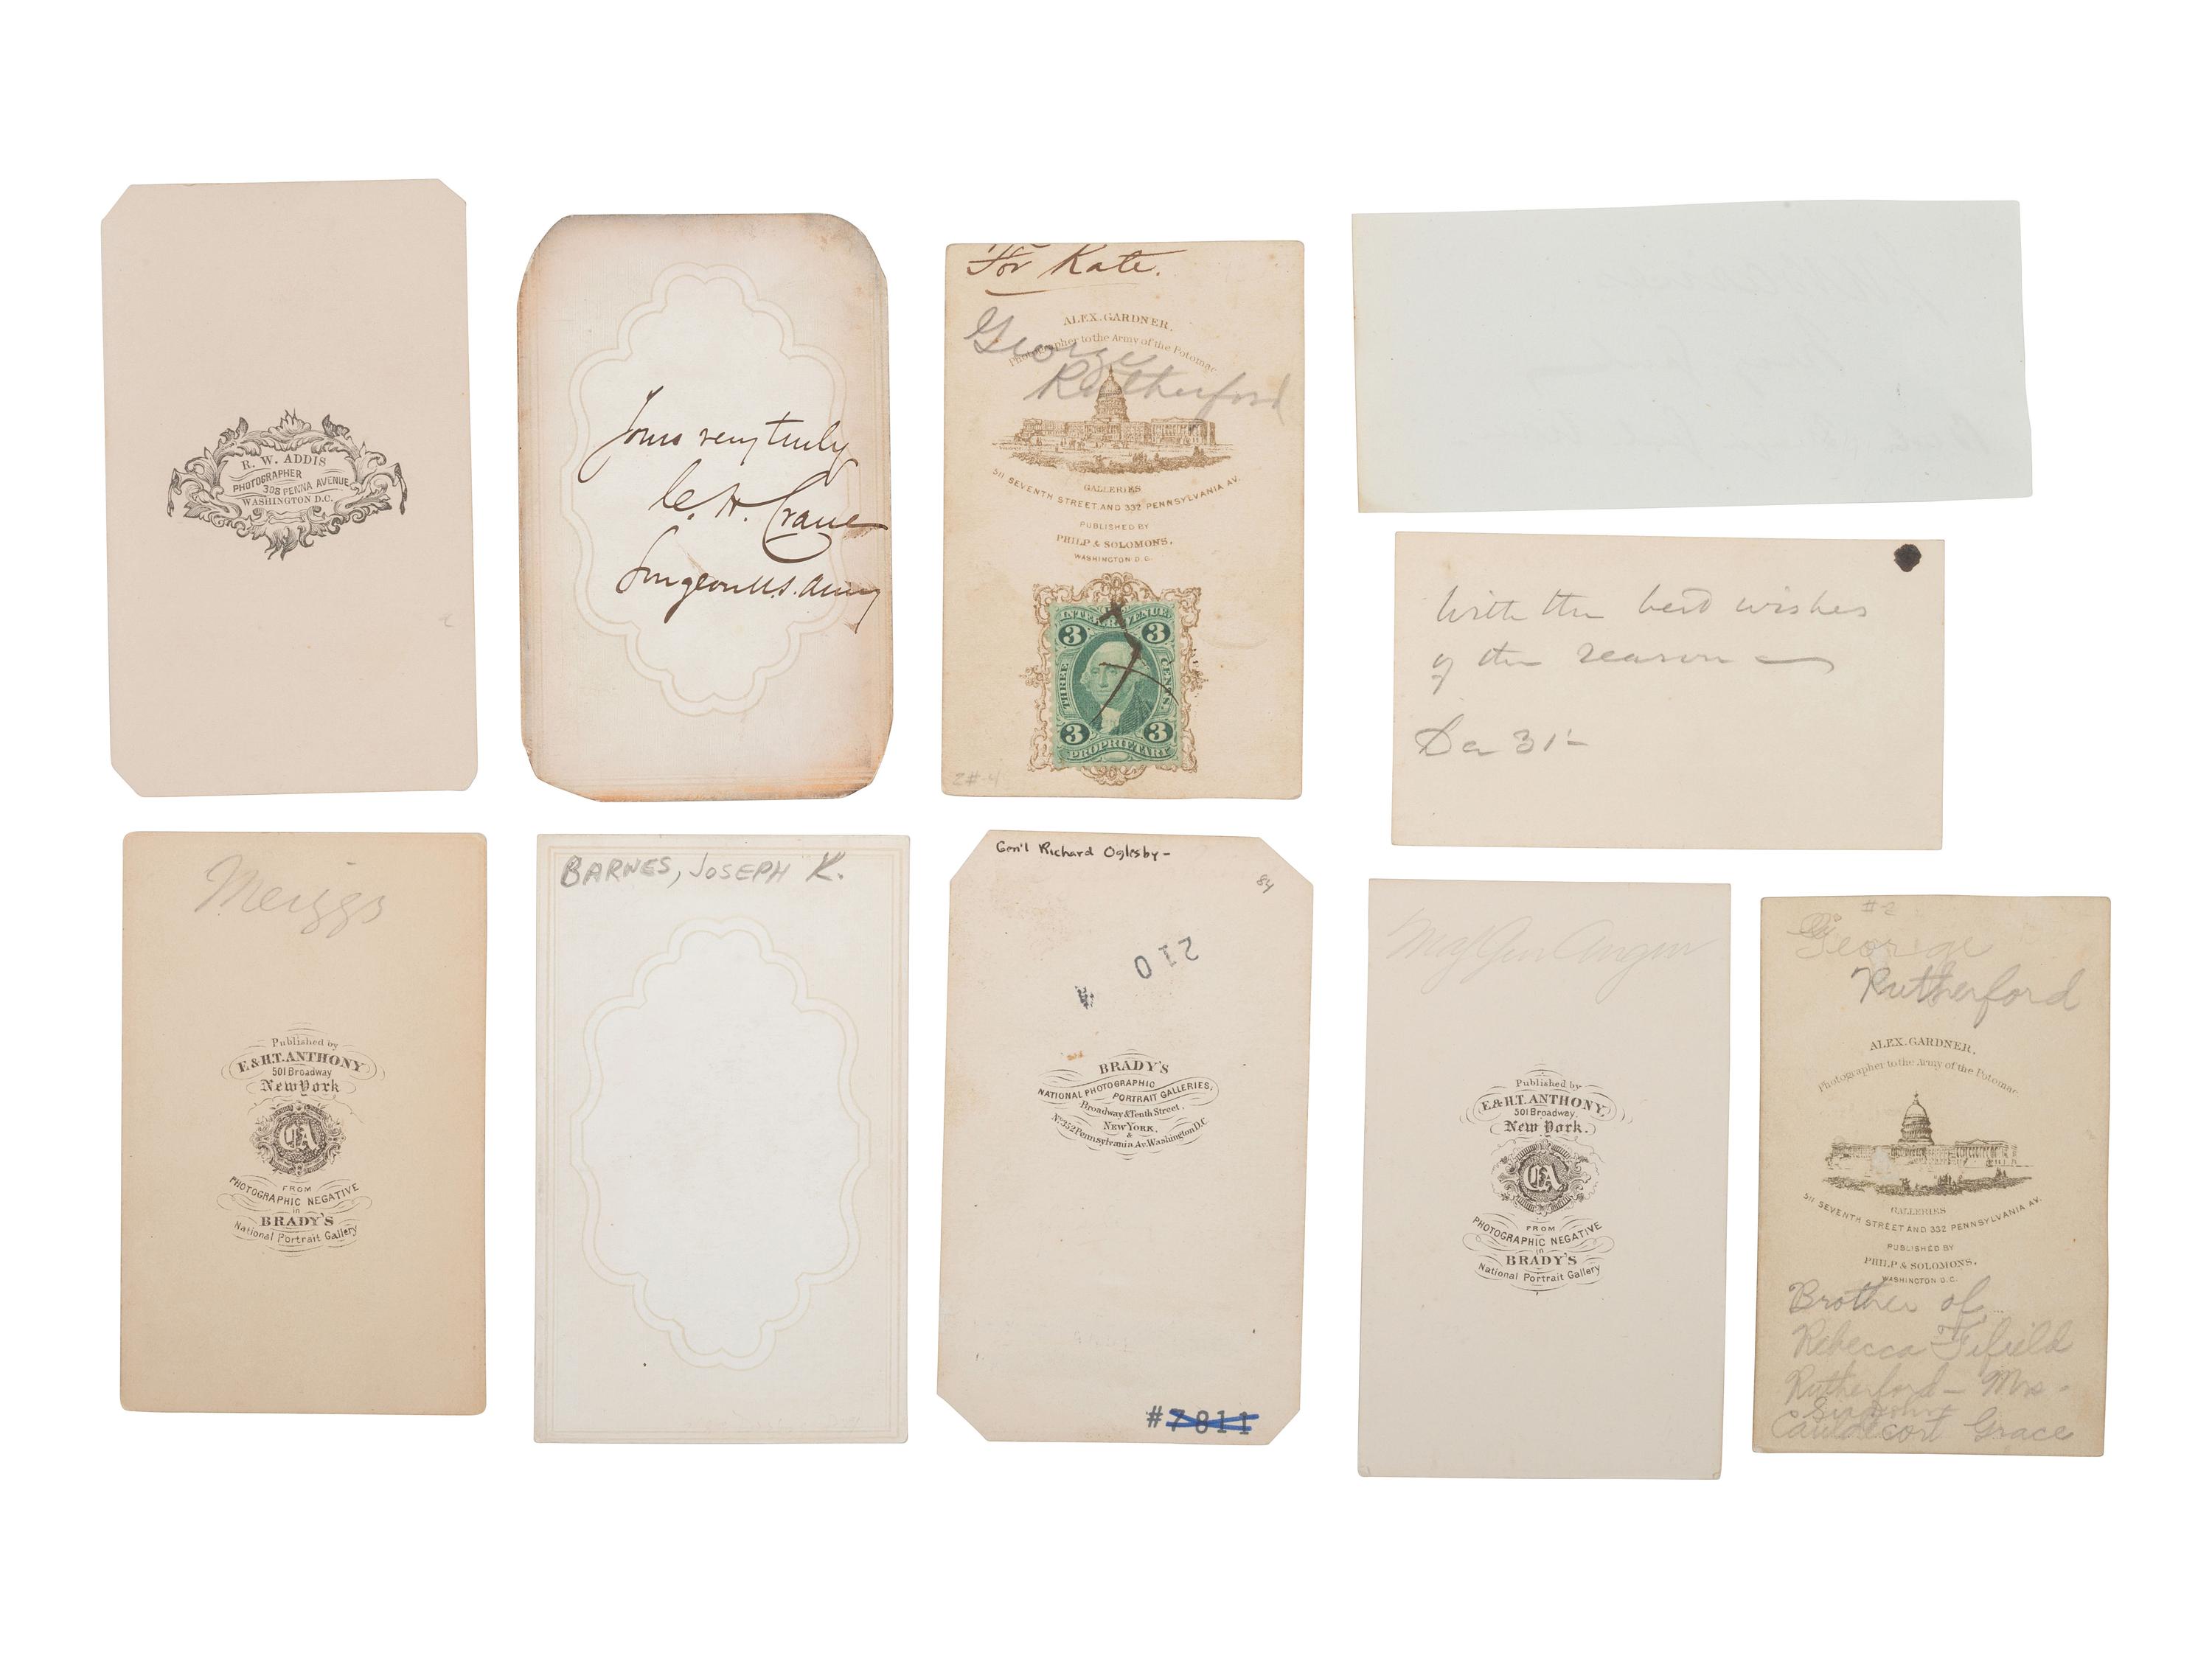 R. W. ADDIS
PHOTOGRAPHER
308 PENNA AVENUE
WASHINGTON D.C.
Yours very truly
C. H. Crane
Surgeon U.S. Army
For Kate.
George
Rutherford
ALEX. GARDNER,
Photographer to the Army of the Potomac
GALLERIES
511 SEVENTH STREET AND 332 PENNSYLVANIA AV.
PUBLISHED BY
PHILP & SOLOMONS,
WASHINGTON D.C.
INTER. REVENUE
3 3
THREE CENTS.
3 3
PROPRIETARY
2#-4
With the best wishes
of the season
De 31
Meiggs
Published by
E. & H.T. ANTHONY
501 Broadway
New York
FROM
PHOTOGRAPHIC NEGATIVE
in
BRADY'S
National Portrait Gallery
BARNES, JOSEPH K.
Gen'l Richard Oglesby-
84
210
BRADY'S
NATIONAL PHOTOGRAPHIC
PORTRAIT GALLERIES,
Broadway & Tenth Street,
NEW YORK,
&
No. 352 Pennsylvania Av. Washington D.C.
#7811
Maj Gen
Published by
E. & H.T. ANTHONY,
501 Broadway.
New York.
FROM
PHOTOGRAPHIC NEGATIVE
in
BRADY'S
National Portrait Gallery
#2
George
Rutherford
ALEX. GARDNER,
Photographer to the Army of the Potomac
GALLERIES
511 SEVENTH STREET AND 332 PENNSYLVANIA AV.
PUBLISHED BY
PHILP & SOLOMONS,
WASHINGTON D.C.
Brother of
Rebecca Fifield
Rutherford - Mrs.
Grace